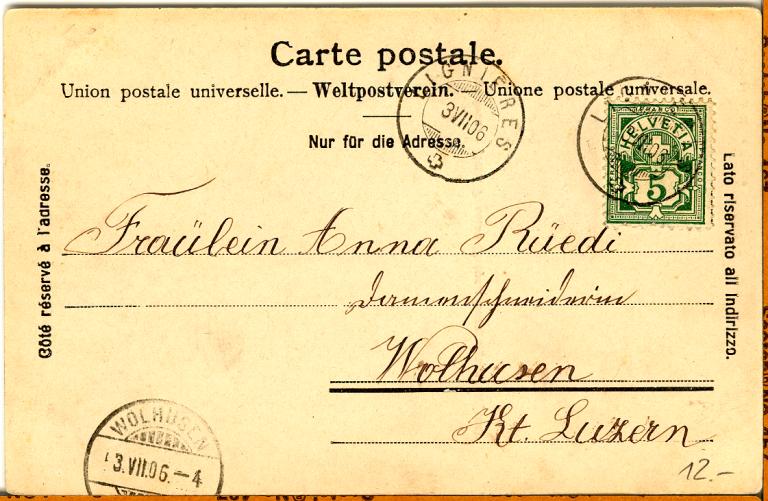 Carte postale.
Union postale universelle. — Weltpostverein. — Unione postale universale.
Nur für die Adresse.
LIGNIÈRES
3 VII 06
HELVETIA
FRANCO
5
Côté réservé à l'adresse.
Lato riservato all indirizzo.
Fraülein Anna Rüedi
Damenschneiderin
Wolhusen
Kt. Luzern
WOLHUSEN
3.VII.06.–4
12.–